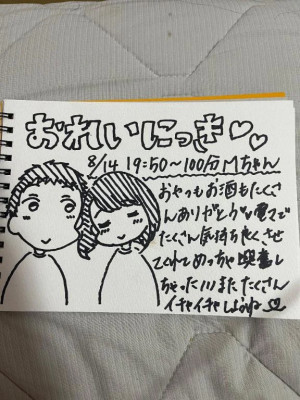 おれいにっき♡♡
8/14 19:50〜100分 Mちゃん
おやつもお酒もたくさ
んありがとう♡電マで
たくさん気持ち良くさせ
てくれてめっちゃ興奮し
ちゃった///またたくさん
イチャイチャしようね♡